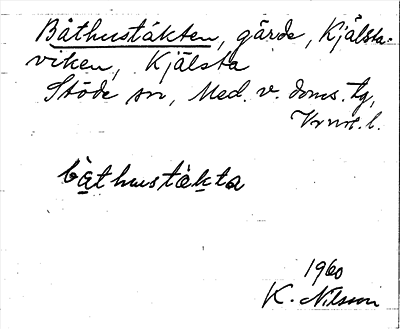 Båthustäkten, gärde, Kjälsta-
viken, Kjälsta
Stöde sn, Med. v. doms. tg,
Vrnrl. l.
båthustäkta
1960
K. Nilsson